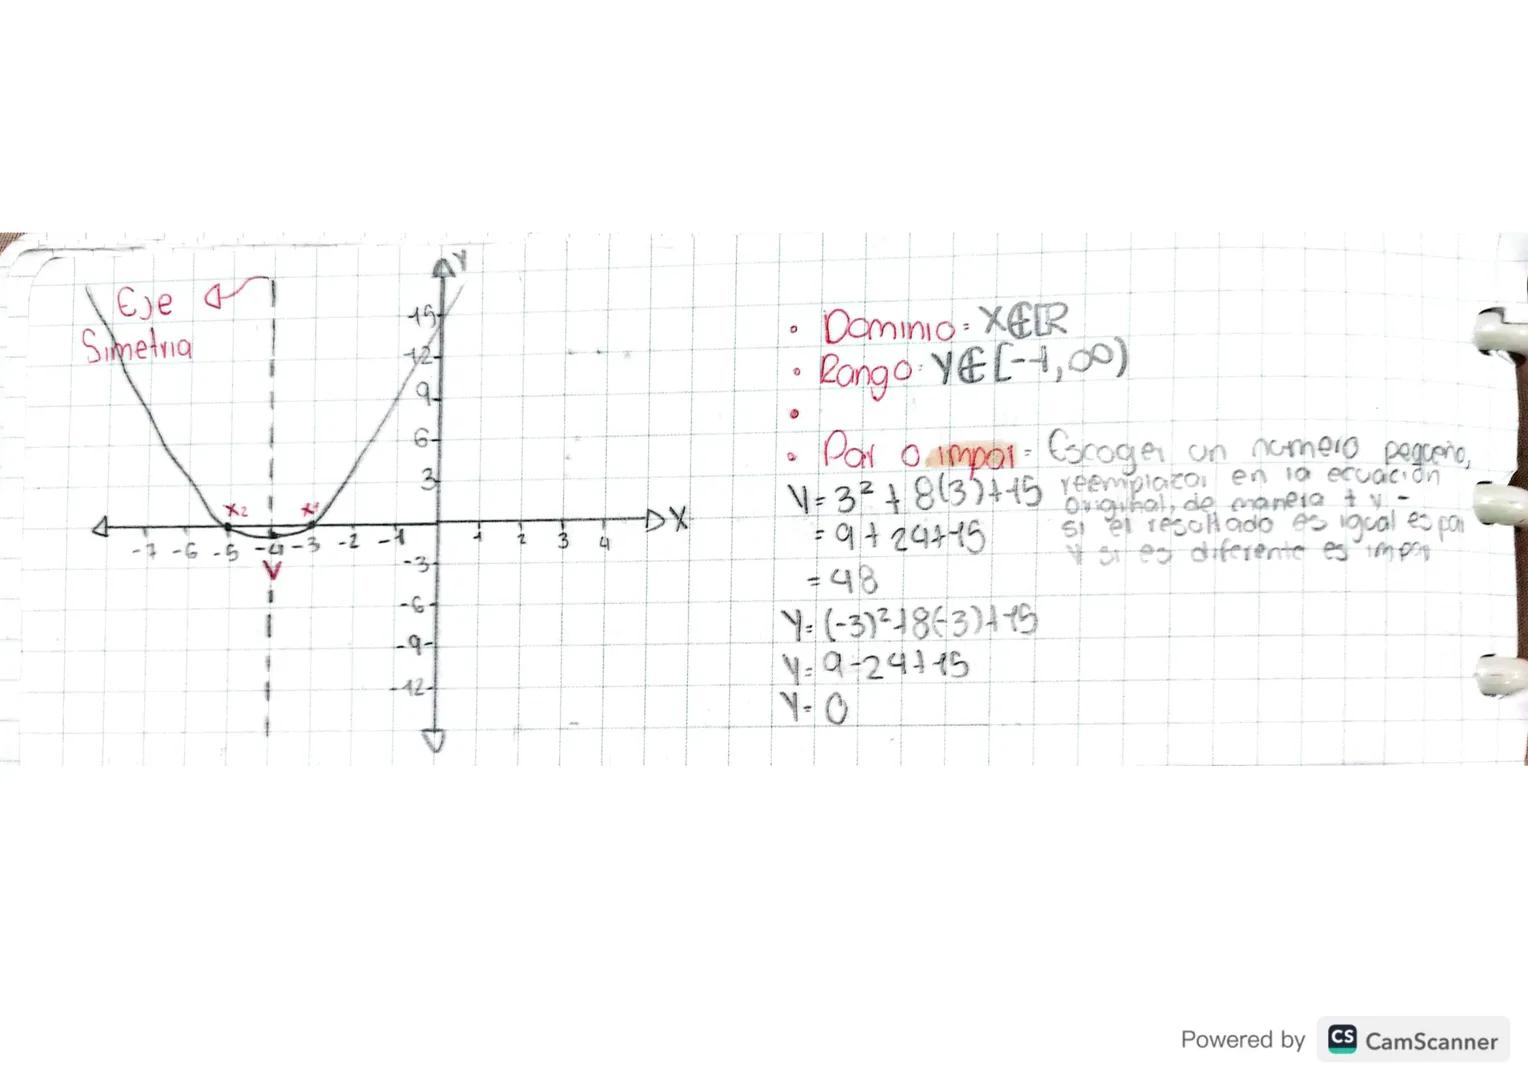 Eje
Simetria
Y
15
12
9
6
3
X2
X1
X
-7 -6 -5 -4 -3 -2 -1
1 2 3 4
V
-3
-6
-9
-12
• Dominio: X∈ℝ
• Rango: Y∈[-1,∞)
•
• Par o impar: Escoger un numero pequeño,
reemplazar en la ecuación
original, de manera + y -
si el resultado es igual es par
y si es diferente es impar
Y = 3² + 8(3)+15
= 9 + 24+15
= 48
Y= (-3)²+8(-3)+15
Y= 9-24+15
Y= 0
Powered by CS CamScanner